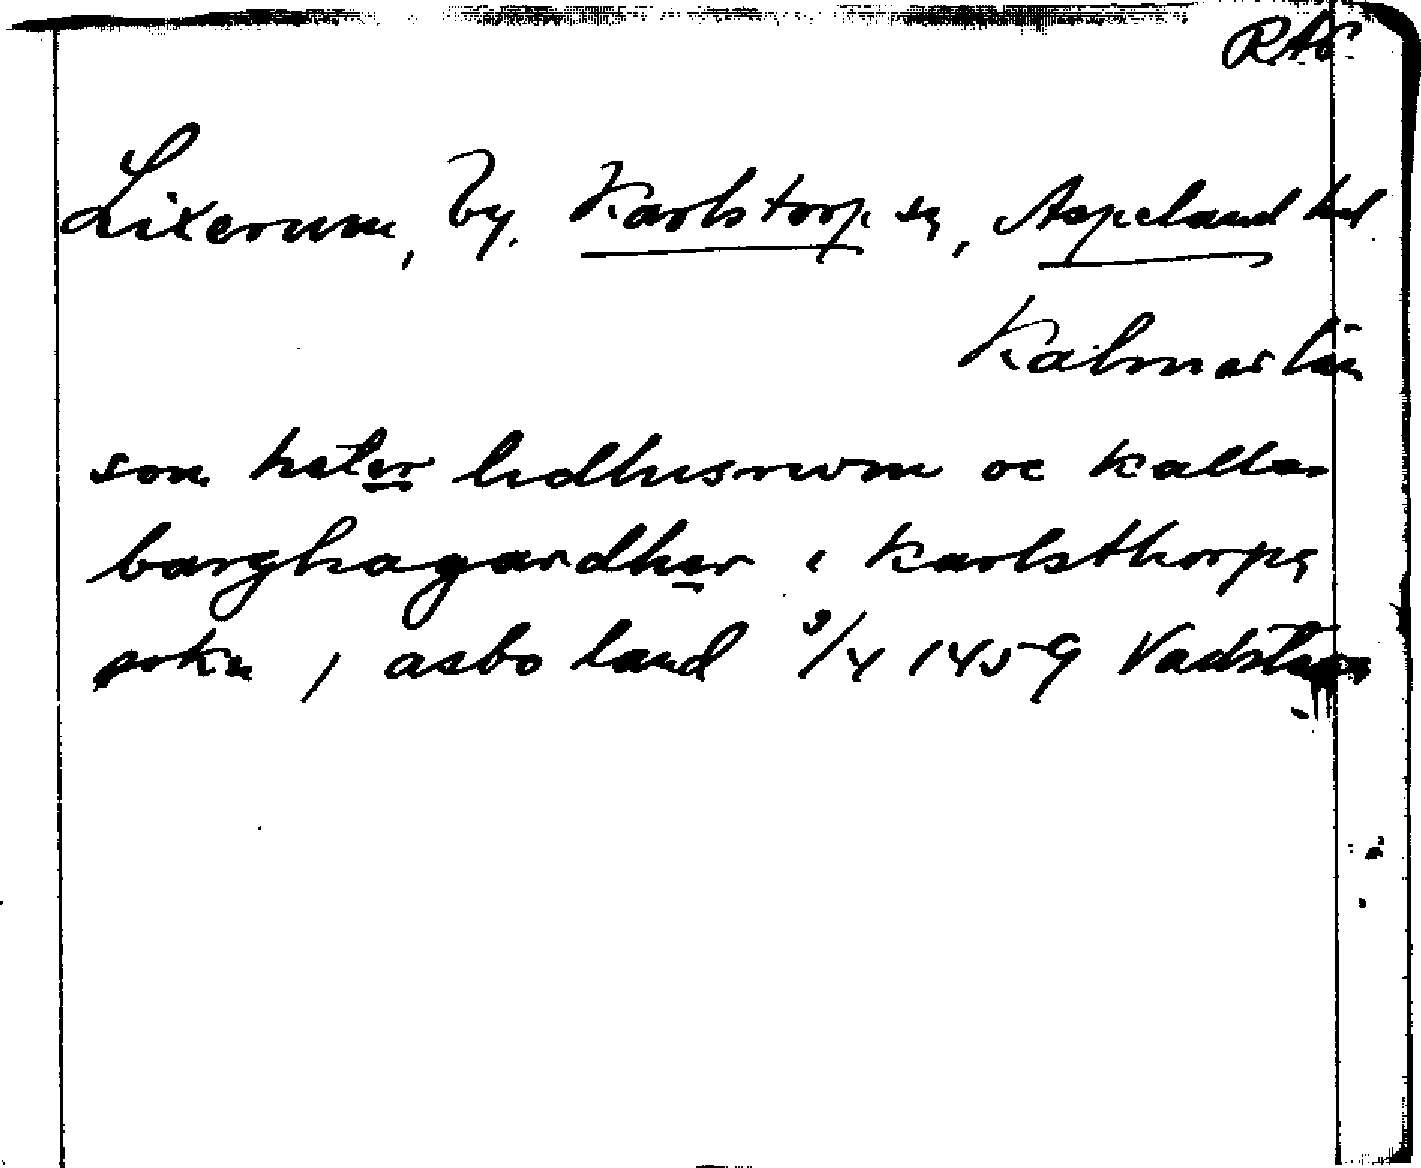 RAP
Lixerum, by. Karlstorp sn, Aspeland hd
Kalmar län
som heter lidhusrwm oc kallas
barghagardher i karlsthorps
sokn, asboland 3/4 1459 Vadstena